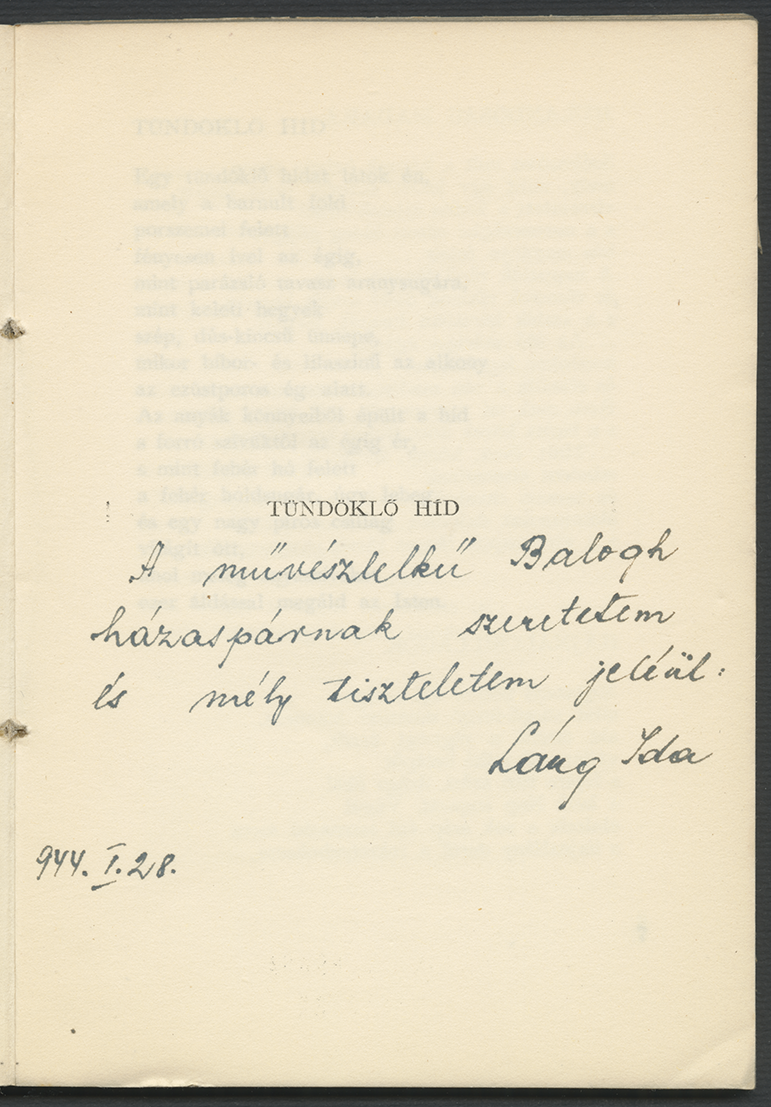 TÜNDÖKLŐ HÍD
A művészlelkű Balogh
házaspárnak szeretetem
és mély tiszteletem jeléül:
Láng Ida
944. I. 28.